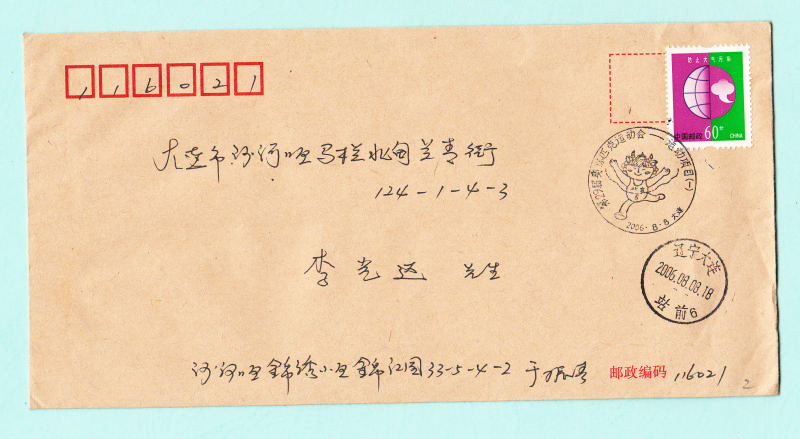 116021
防止大气污染
中国邮政 60分 CHINA
大连市沙河口区马栏北甸兰青街
124-1-4-3
第29届奥林匹克运动会——运动项目(一)
2006.8.8 大连
李先生
辽宁大连
2006.08.08.18
前6
沙河口区锦绣小区锦江园33-5-4-2 于
邮政编码 116021
2